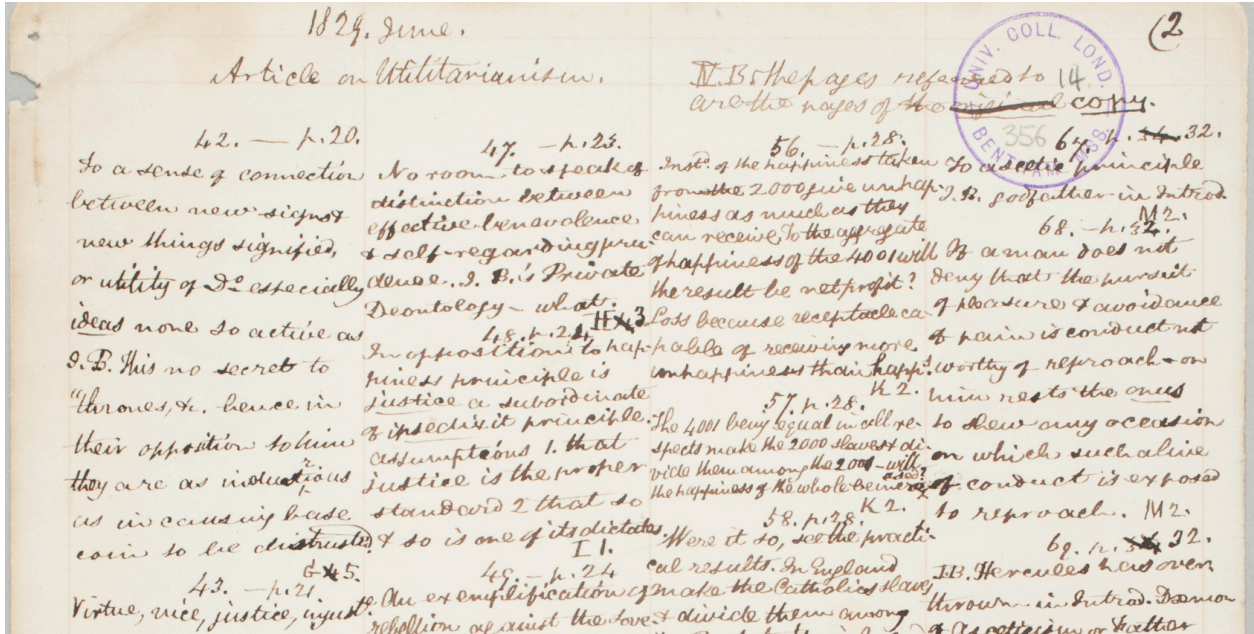 1829. June.
(2
Article on Utilitarianism.
N.B. the pages referred to
are the pages of the original copy.
UNIV. COLL. LOND.
BENTHAM MSS.
14
356
42. — p.20.
To a sense of connection
between new signs &
new things signified,
or utility of Do especially
ideas none so active as
J.B. His no secret to
"thrones, &c. hence in
their opposition to him
they are as industrious
as in causing base
coin to be distrusted.
G 5.
43. — p.21.
Virtue, vice, justice, injust
47. — p.23.
No room to speak of
distinction between
effective benevolence
& self-regarding pru-
dence. J.B.'s Private
Deontology — what.
H 3
48. p.24
In opposition to hap-
piness principle is
justice a subordinate
of ipsedixit principle.
assumptions 1. that
justice is the proper
standard 2 that so
& so is one of its dictates.
I 1.
49. — p.24
An exemplification of
rebellion against the love
56. — p.28.
Instd. of the happiness taken
from the 2000 give unhap-
piness as much as they
can receive To the aggregate
of happiness of the 4001 will
the result be net profit?
Loss because receptacle ca-
pable of receiving more
unhappiness than happs.
K 2.
57. p.28.
The 4001 being equal in all re-
spects make the 2000 slaves & di-
vide them among the 2001 – will
the happiness of the whole be incre
ased?
K 2.
58. p.28.
Were it so, see the practi-
cal results. In England
make the Catholics slaves
& divide them among
67. p. 32.
To ascetic principle
J.B. godfather in Introd.
M2.
68. — p.32.
If a man does not
deny that the pursuit
of pleasure & avoidance
of pain is conduct not
worthy of reproach – on
him rests the onus
to shew any occasion
on which such a line
of conduct is exposed
to reproach. M2.
69. p. 32.
J.B. Hercules has over
thrown in Introd. Dæmon
of Asceticism or Father